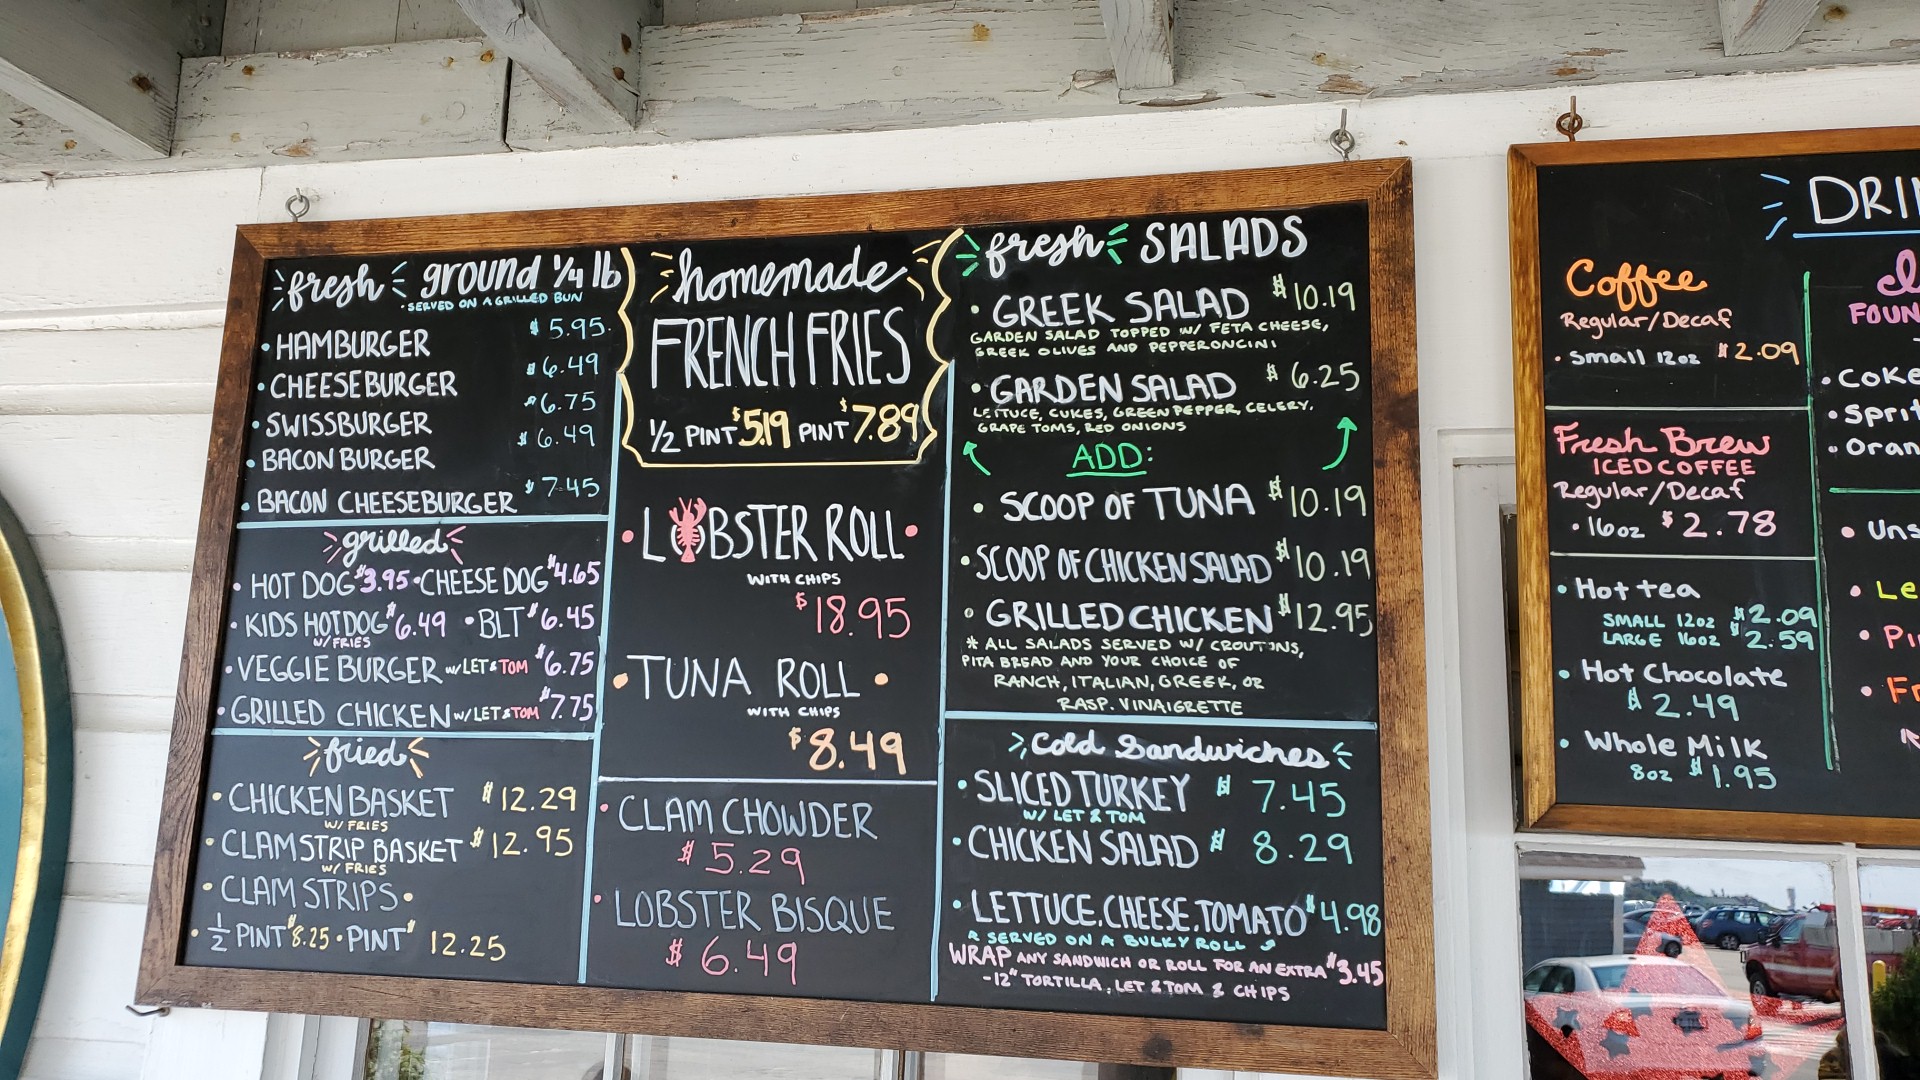 fresh ground 1/4 lb
• SERVED ON A GRILLED BUN
• HAMBURGER $5.95
• CHEESEBURGER $6.49
• SWISSBURGER $6.75
• BACON BURGER $6.49
• BACON CHEESEBURGER $7.45
grilled
• HOT DOG $3.95 • CHEESE DOG $4.65
• KIDS HOT DOG $6.49 • BLT $6.45
W/ FRIES
• VEGGIE BURGER W/ LET & TOM $6.75
• GRILLED CHICKEN W/ LET & TOM $7.75
fried
• CHICKEN BASKET $12.29
W/ FRIES
• CLAM STRIP BASKET $12.95
W/ FRIES
• CLAM STRIPS •
• 1/2 PINT $8.25 • PINT $12.25
homemade
FRENCH FRIES
1/2 PINT $5.19 PINT $7.89
• LOBSTER ROLL •
WITH CHIPS
$18.95
• TUNA ROLL •
WITH CHIPS
$8.49
• CLAM CHOWDER
$5.29
• LOBSTER BISQUE
$6.49
fresh SALADS
• GREEK SALAD $10.19
GARDEN SALAD TOPPED W/ FETA CHEESE,
GREEK OLIVES AND PEPPERONCINI
• GARDEN SALAD $6.25
LETTUCE, CUKES, GREEN PEPPER, CELERY,
GRAPE TOMS, RED ONIONS
ADD:
• SCOOP OF TUNA $10.19
• SCOOP OF CHICKEN SALAD $10.19
• GRILLED CHICKEN $12.95
* ALL SALADS SERVED W/ CROUTONS,
PITA BREAD AND YOUR CHOICE OF
RANCH, ITALIAN, GREEK, OR
RASP. VINAIGRETTE
Cold Sandwiches
• SLICED TURKEY $7.45
W/ LET & TOM
• CHICKEN SALAD $8.29
• LETTUCE, CHEESE, TOMATO $4.98
SERVED ON A BULKY ROLL
WRAP ANY SANDWICH OR ROLL FOR AN EXTRA $3.45
-12" TORTILLA, LET & TOM & CHIPS
DRI
Coffee
Regular/Decaf
• Small 12oz $2.09
Fresh Brew
ICED COFFEE
Regular/Decaf
• 16oz $2.78
• Hot tea
SMALL 12oz $2.09
LARGE 16oz $2.59
• Hot Chocolate
$2.49
• Whole Milk
8oz $1.95
FOUN
• Coke
• Sprit
• Oran
• Uns
• Le
• Pi
• Fr